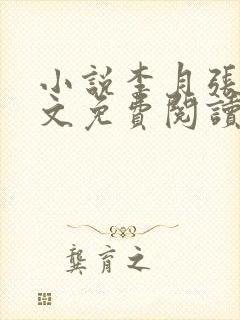 小說李月張
文免費閱讀
龔育之